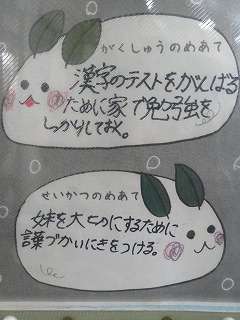 がくしゅうのめあて
漢字のテストをがんばる
ために家で勉強を
しっかりしておく。
せいかつのめあて
妹を大切にするために
言葉づかいにきをつける。